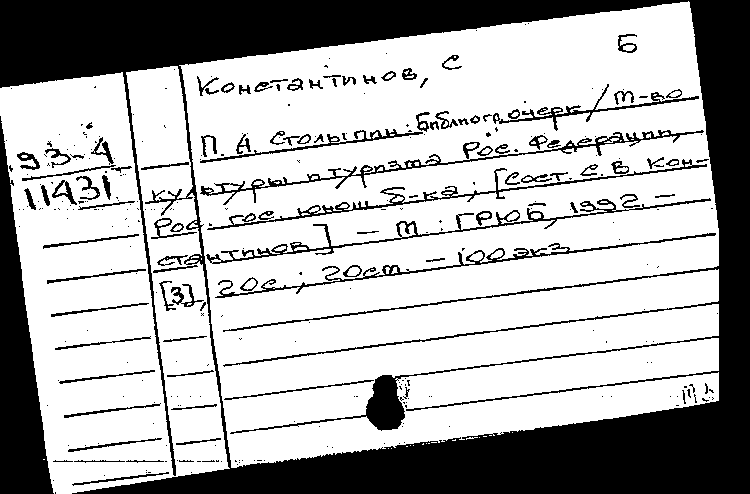 Б
Константинов, С
93-4
11431
П. А. Столыпин: Библиогр. очерк / М-во
культуры и туризма Рос. Федерации,
Рос. гос. юнош. б-ка; [Сост. С. В. Кон-
стантинов] — М : ГРЮБ, 1992 —
[3], 20с.; 20см. — 100 экз